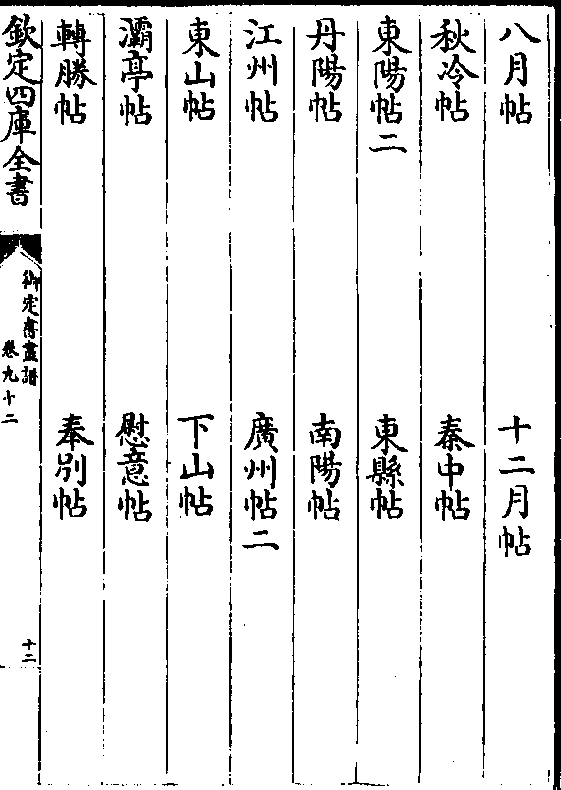 八月帖　十二月帖
秋冷帖　秦中帖
東陽帖二　東縣帖
丹陽帖　南陽帖
江州帖　廣州帖二
東山帖　下山帖
灞亭帖　慰意帖
轉勝帖　奉別帖
欽定四庫全書
御定書畫譜
卷九十二
十二